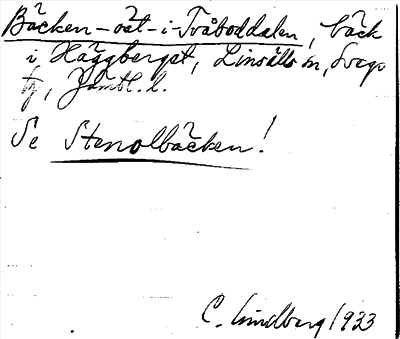 Bäcken-öst-i-Tvåboddalen, bäck
i Häggberget, Linsälls sn, Svegs
tg, Jämtl. l.
Se Stenolbäcken!
C. Lindberg 1933